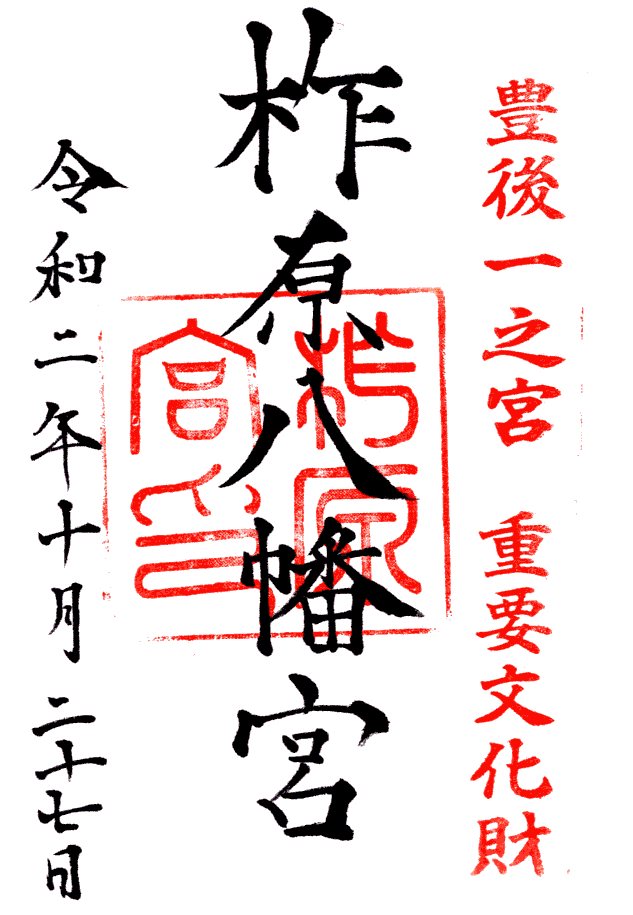 豊後一之宮 重要文化財
柞原八幡宮
柞原
宮印
令和二年十月二十七日